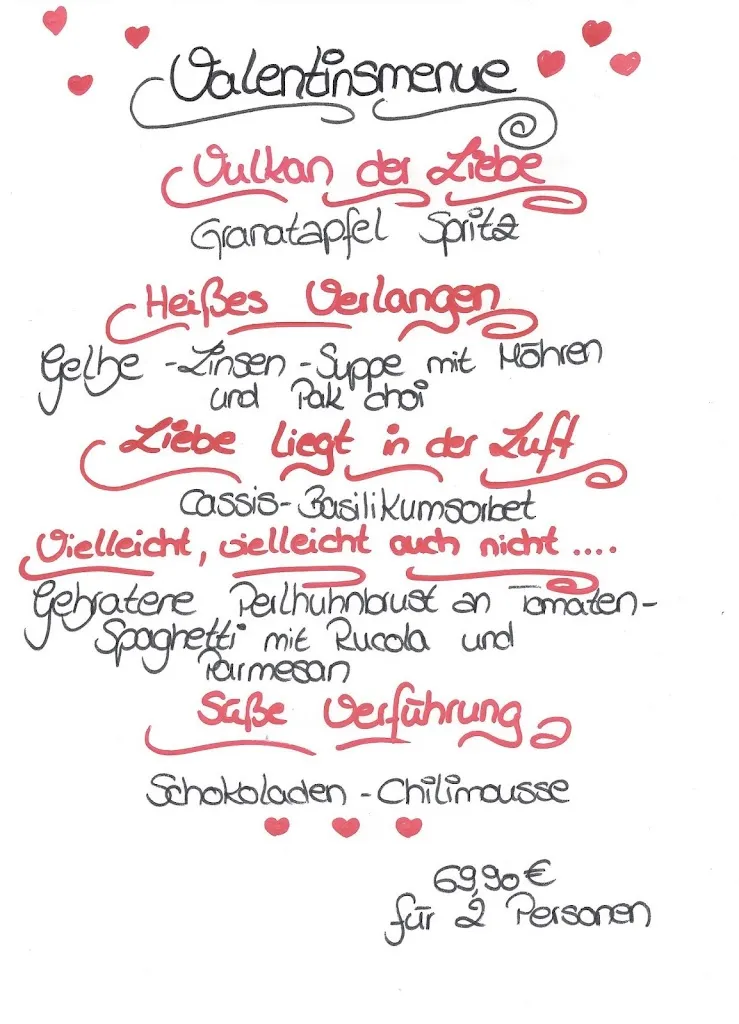 Valentinsmenue
Vulkan der Liebe
Granatapfel Spritz
Heißes Verlangen
Gelbe-Linsen-Suppe mit Möhren
und Pak choi
Liebe liegt in der Luft
Cassis-Basilikumsorbet
Vielleicht, vielleicht auch nicht ....
Gebratene Perlhuhnbrust an Tomaten-
Spaghetti mit Rucola und
Parmesan
Süße Verführung
Schokoladen-Chilimousse
69,90€
für 2 Personen